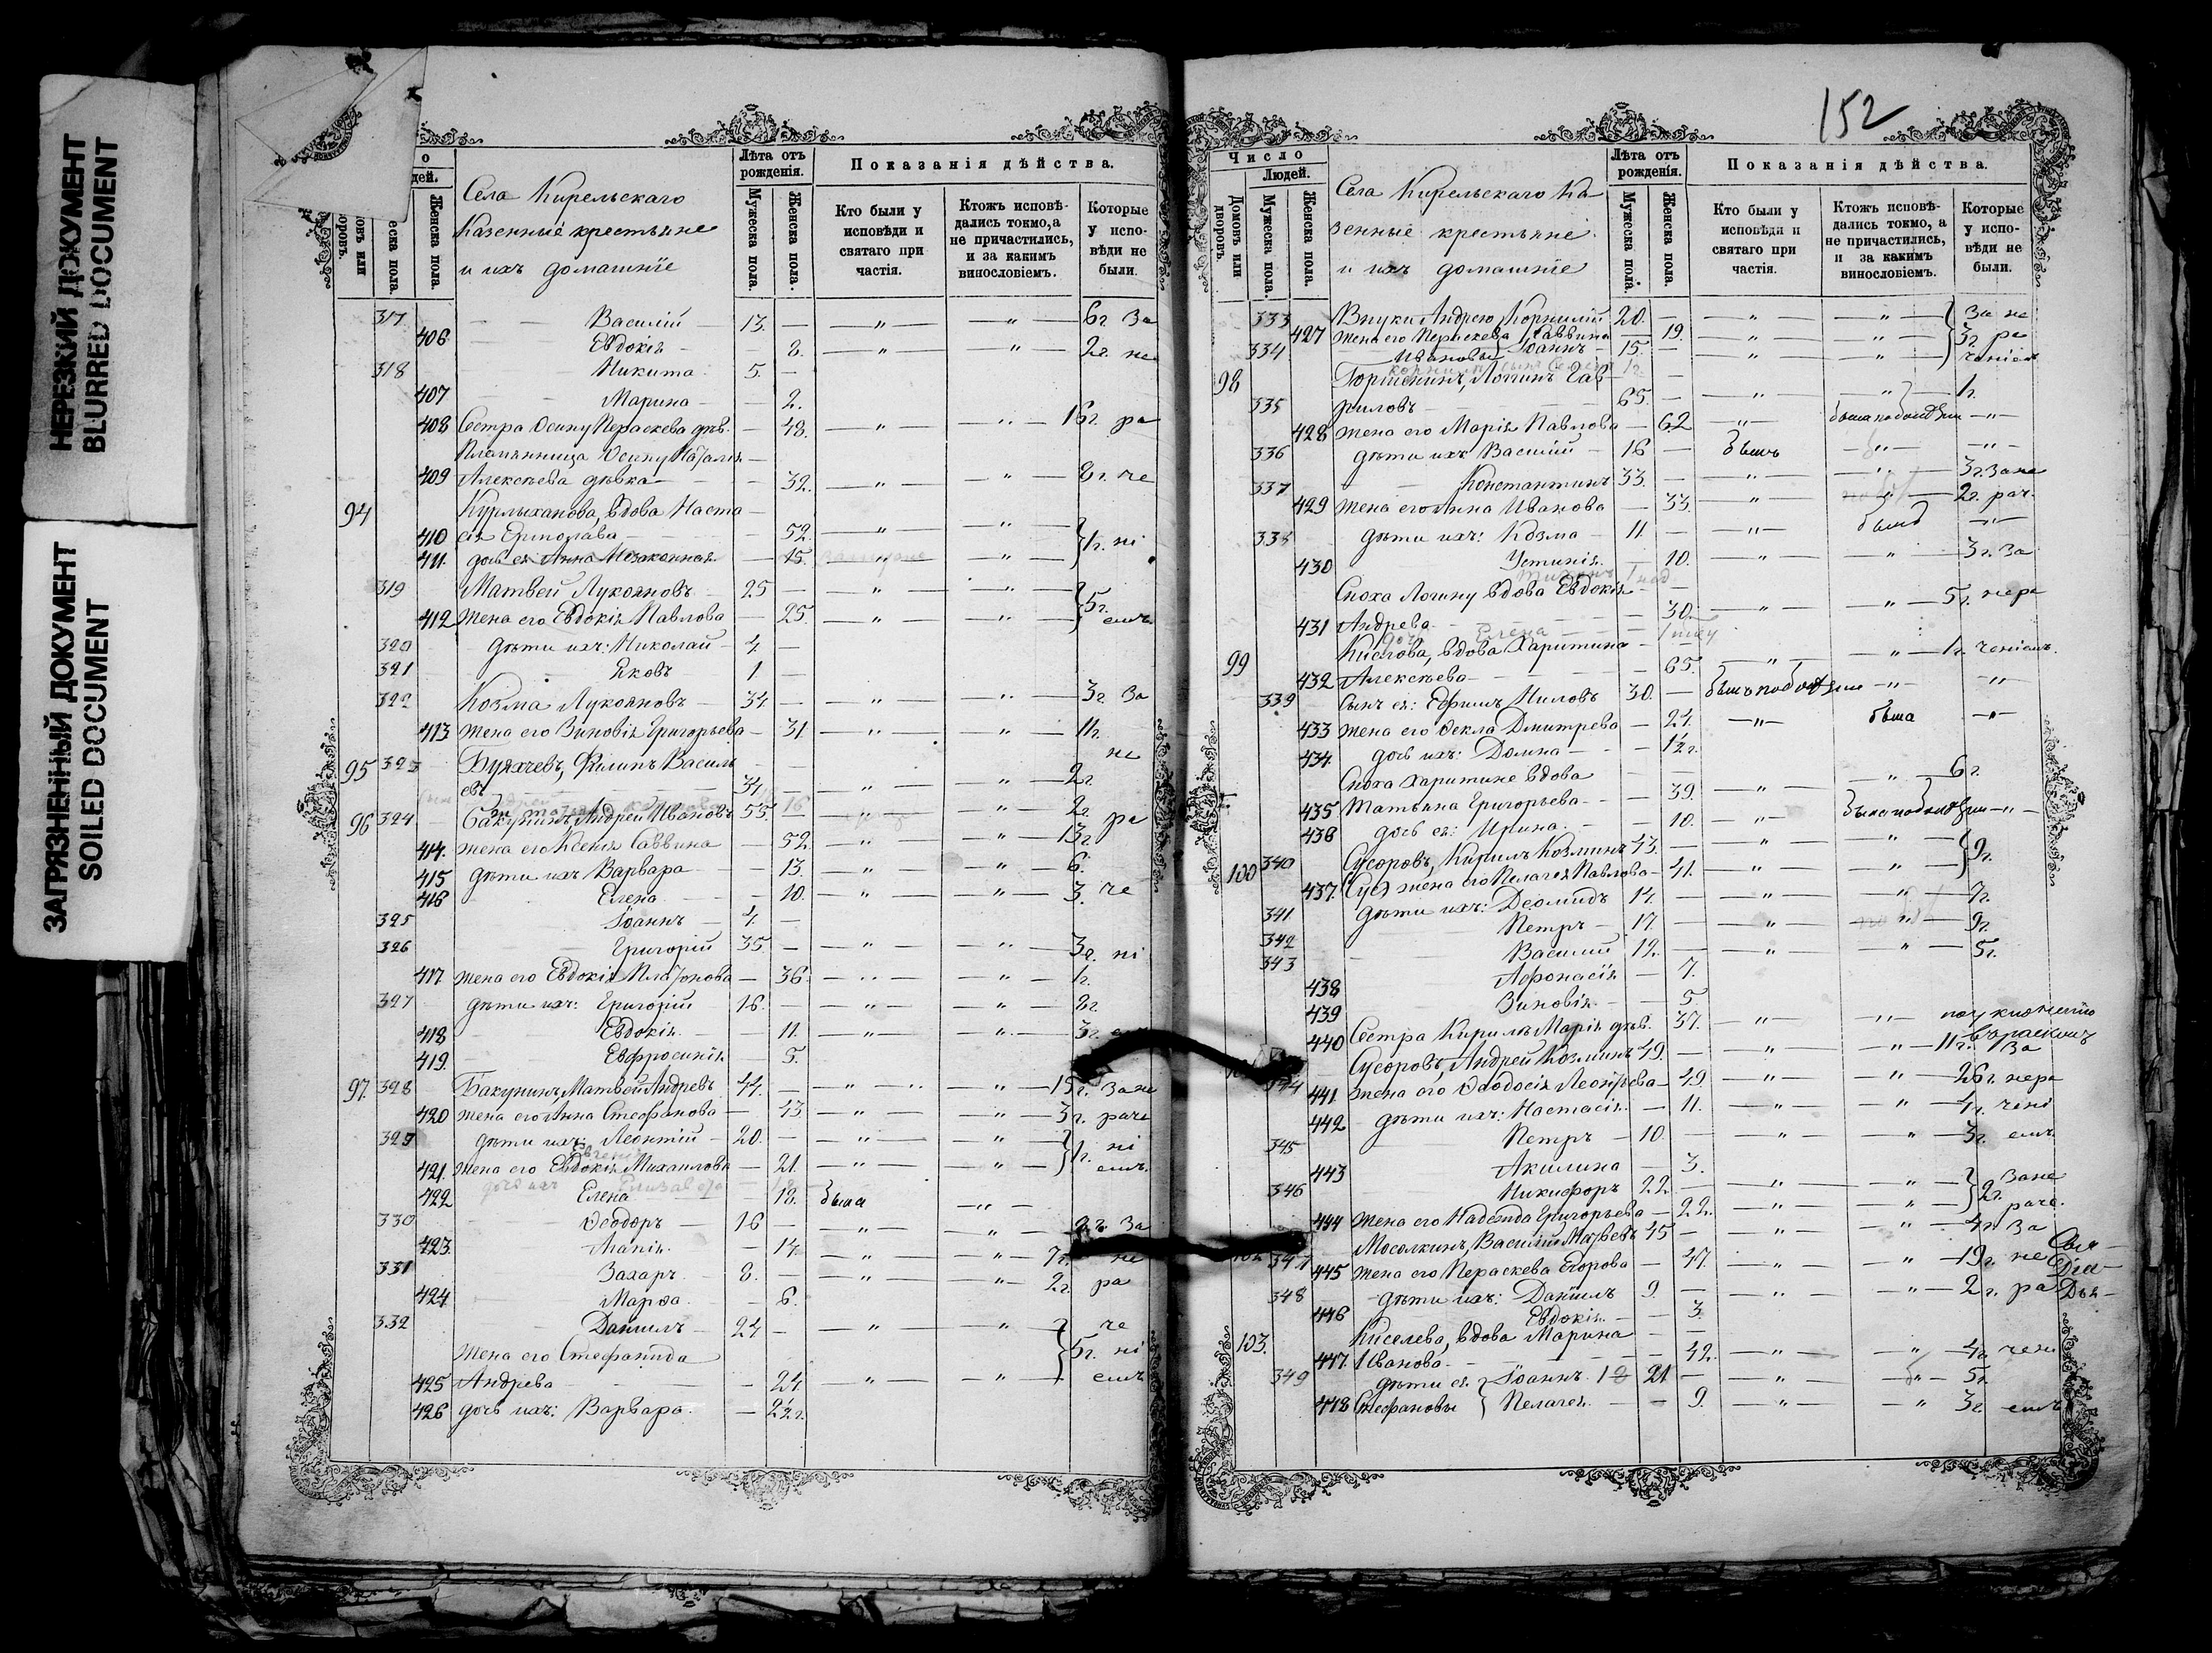 НЕРЕЗКИЙ ДОКУМЕНТ
BLURRED DOCUMENT
ЗАГРЯЗНЕННЫЙ ДОКУМЕНТ
SOILED DOCUMENT
о
дей.
Женска пола.
Села Кирельскаго
Казенные крестьяне
и ихъ домашніе
Лѣта отъ рожденія.
Мужеска пола.
Женска пола.
Показанія дѣйства.
Кто были у исповѣди и святаго при частія.
Ктожъ исповѣ- дались токмо, а не причастились, и за какимъ винословіемъ.
Которые у испо- вѣди не были.
317 Василій 13. — „ — — „ — 6 г. За
406 Евдокія 8. — „ — „ — 2 г. не
318 Никита 5. —
407 Марина — 2.
408 Сестра Осипу Параскева дѣв. — 48. — „ — „ — 16 г. ра
Племянница Осипу Наталія
409 Алексѣева дѣвка — 32. — „ — „ — 8 г. че
94 Курлыханова, вдова Наста
410 сія Ермолава — 52. — „ — „
411. дочь ея Анна Незаконная — 15. — „ — 1 г. ні
319 Матвей Лукояновъ 25 — „ — „
412 жена его Евдокія Павлова — 25. — „ — „ — 5 г. емъ.
320 дѣти ихъ: Николай 4 —
321 Яковъ 1 —
322 Козма Лукояновъ 34 — „ — „ — 3 г. За
413 жена его Зиновія Григорьева — 31. — „ — „ — 11 г. не
95 323 Филипъ Василь
евъ 34 — „ — „ — 2 г.
96 324 Бакунинъ, Андрей Ивановъ 55. — „ — „ — 2 г. ра
414. жена его Ксенія Саввина — 52. — „ — „ — 13 г.
415 дѣти ихъ Варвара — 13. — „ — „ — 6.
416 Елена — 10. — „ — „ — 3. че
325 Іоаннъ 4. —
326 Григорій 35. — „ — „ — 3 г. ні
417. жена его Евдокія Платонова — 36. — „ — „ — 1 г.
327 дѣти ихъ: Григорій 16. — „ — „ — 8 г.
418 Евдокія — 11. — „ — „ — 3 г. емъ
419. Евфросинія — 5.
97. 328 Бакунинъ, Матвей Андревъ 44. — „ — „ — 15 г. За не
420 жена его Анна Стефанова — 43. — „ — „ — 3 г. раче
329 дѣти ихъ: Леонтій 20. — „ — „
421. жена его Евдокія Михаилова — 21. — „ — „ — 1 г. ні емъ.
422 Елена — 18. была — „ —
330 Ѳеодоръ 16 — „ — „ — 2 г. За
423. — 14. — „ — „ — 7 г. не
331 Захаръ 8. — „ — „ — 2 г. ра
424 Марѳа — 6.
332 Даніилъ 24 — „ — „ че
жена его Стефанида
425 Андрева — 24 — „ — „ — 5 г. ні емъ
426 дочь ихъ: Варвара — 2½ г.
152
Число
Людей.
Домовъ или дворовъ.
Мужеска пола.
Женска пола.
Села Кирельскаго Ка
зенные крестьяне
и ихъ домашніе
Лѣта отъ рожденія.
Мужеска пола.
Женска пола.
Показанія дѣйства.
Кто были у исповѣди и святаго при частія.
Ктожъ исповѣ- дались токмо, а не причастились, и за какимъ винословіемъ.
Которые у испо- вѣди не были.
333 Внуки Андрею, Корнилій 20. — „ — „ За не
427 жена его Параскева Саввина — 19. — „ — „ — 3 г. ра
334 Ивановы Іоаннъ 15. — „ — „ ченіем
98 Горшенинъ, Логинъ Гав
335 риловъ 65. — „ — „ — 1 г.
428 жена его Марія Павлова — 62 — „ — — „ —
336 дѣти ихъ: Василій 16 — былъ — „ — — „ —
337 Константинъ 33. — „ — „ — 3 г. За не
429 жена его Анна Иванова — 33. — „ — 2 г. рач.
338 дѣти ихъ: Козма 11 — „ — былъ — „ —
430 Устинія — 10. — „ — „ — 3 г. За
Сноха Логину вдова Евдокія
431 Андрева — 30. — „ — „ — 5 г. нера
дочь Елена
99 Кислова, вдова Харитина
432 Алексѣева — 65. — „ — „ — 1 г. ченіемъ.
339 Сынъ ея: Ефимъ Ниловъ 30. — — „ — — „ —
433 жена его Ѳекла Дмитрева — 24. — „ — была — „ —
434 дочь ихъ: Домна — 1½ г.
Сноха Харитине вдова
435 Татьяна Григорьева — 39. — „ — „ — 6 г.
436 дочь ея: Ирина — 10. — „ — — „ —
100 340 Сусоровъ, Кирилъ Козминъ 43. — „ — „
437. жена его Пелагея Павлова — 41. — „ — „ — 9 г.
341 дѣти ихъ: Деомидъ 14. — „ — „ — 7 г.
342 Петръ 17. — „ — „ — 9 г.
343 Василій 12. — „ — „ — 5 г.
438 Афонасія — 7.
439 Зиновія — 5.
440 Сестра Кирилѣ Марія дѣв. 37. — „ — „ —
344 Сусоровъ, Андрей Козминъ 49. — „ — „ — 11 г. За
441 жена его Ѳеодосія Леонтьева — 49. — „ — „ — 26 г. нера
442 дѣти ихъ: Настасія — 11. — „ — „ — 4 г. чені
345 Петръ 10. — „ — „ — 3 г. емъ.
443 Акилина — 3.
346 Никифоръ 22. — „ — „ За не
444 жена его Надежда Григорьева — 22. — „ — „ — 2 г. раче.
102 347 Мосолкинъ, Василій Матвевъ 45 — „ — „ — 4 г. За
445 жена его Параскева Егорова — 47. — „ — „ — 19 г. не
348 дѣти ихъ: Даніилъ 9 — „ — „ — 2 г. ра
446 Евдокія — 3.
103. Киселева, вдова Марина
447. Иванова — 42. — „ — „ — 4 г. чені
349 дѣти ея Іоаннъ 18 21 — „ — „ — 5 г.
448 Стефановы Пелагея — 9. — „ — „ 3 г. емъ